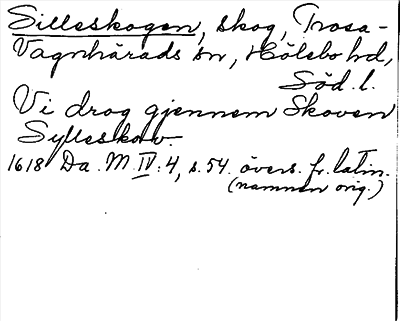 Silleskogen, skog, Trosa-
Vagnhärads sn, Hölebo hd,
Söd. l.
Vi drog gjennem Skoven
Sylleskov.
1618 Da. M. IV: 4, s. 54. övers. fr. latin.
(namnen orig.)